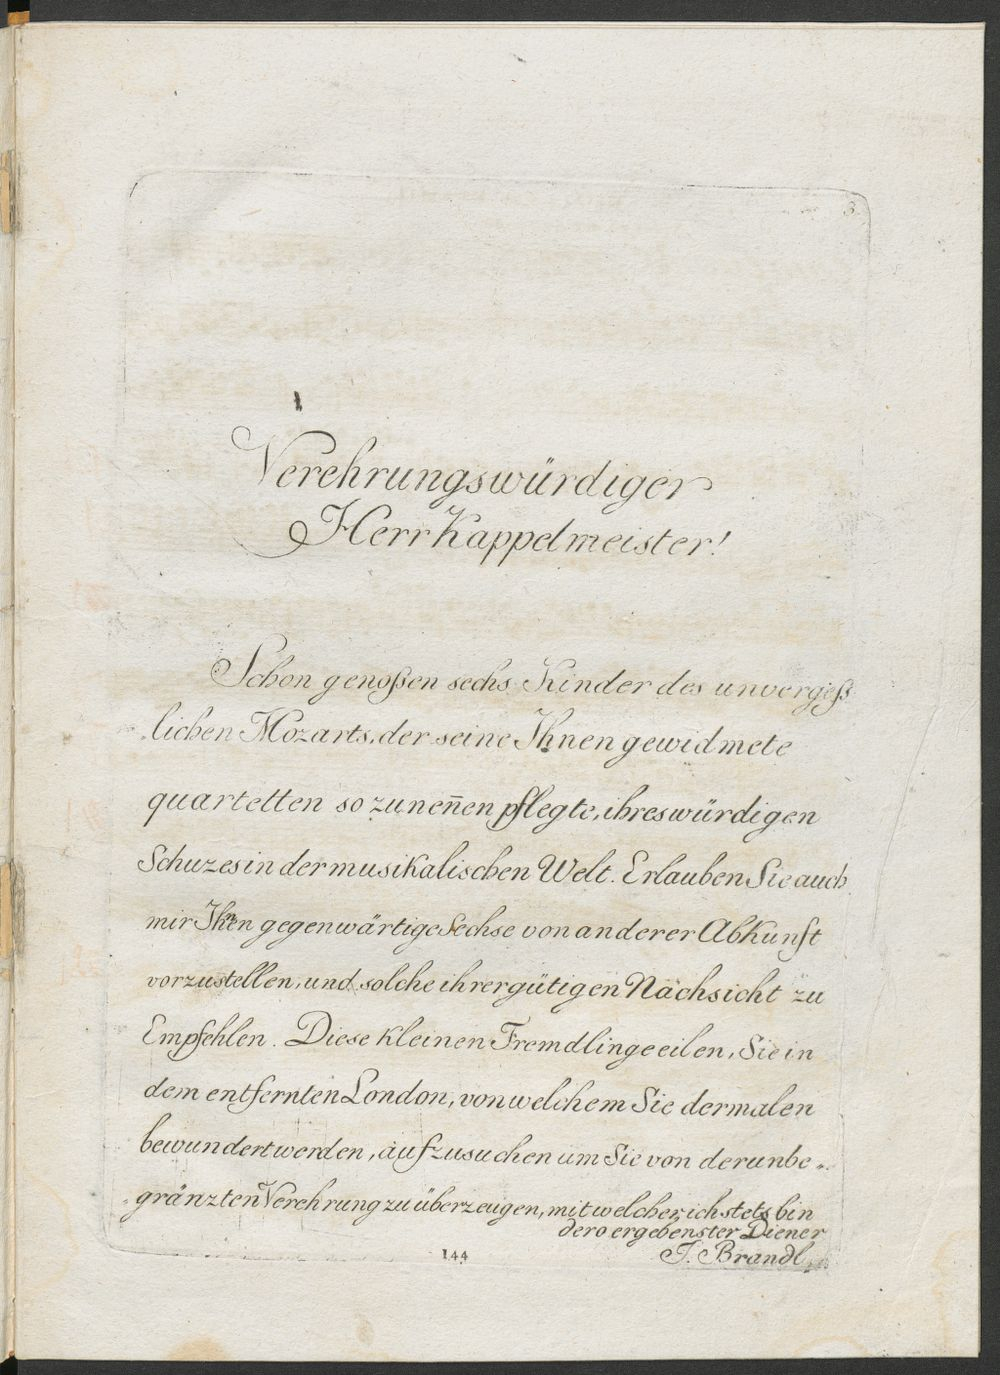 3.
Verehrungswürdiger
Herr Kappelmeister!
Schon genoßen sechs Kinder des unvergeß
lichen Mozarts, der seine Ihnen gewidmete
quartetten so zu neñen pflegte, ihres würdigen
Schuzes in der musikalischen Welt. Erlauben Sie auch
mir Ihnen gegenwärtige Sechse von anderer Abkunft
vorzustellen, und solche ihrer gütigen Nachsicht zu
Empfehlen. Diese kleinen Fremdlinge eilen, Sie in
dem entfernten London, von welchem Sie dermalen
bewundert werden, aufzusuchen um Sie von der unbe„
„gränzten Verehrung zu überzeugen, mit welcher ich stets bin
dero ergebenster Diener
J. Brandl
144